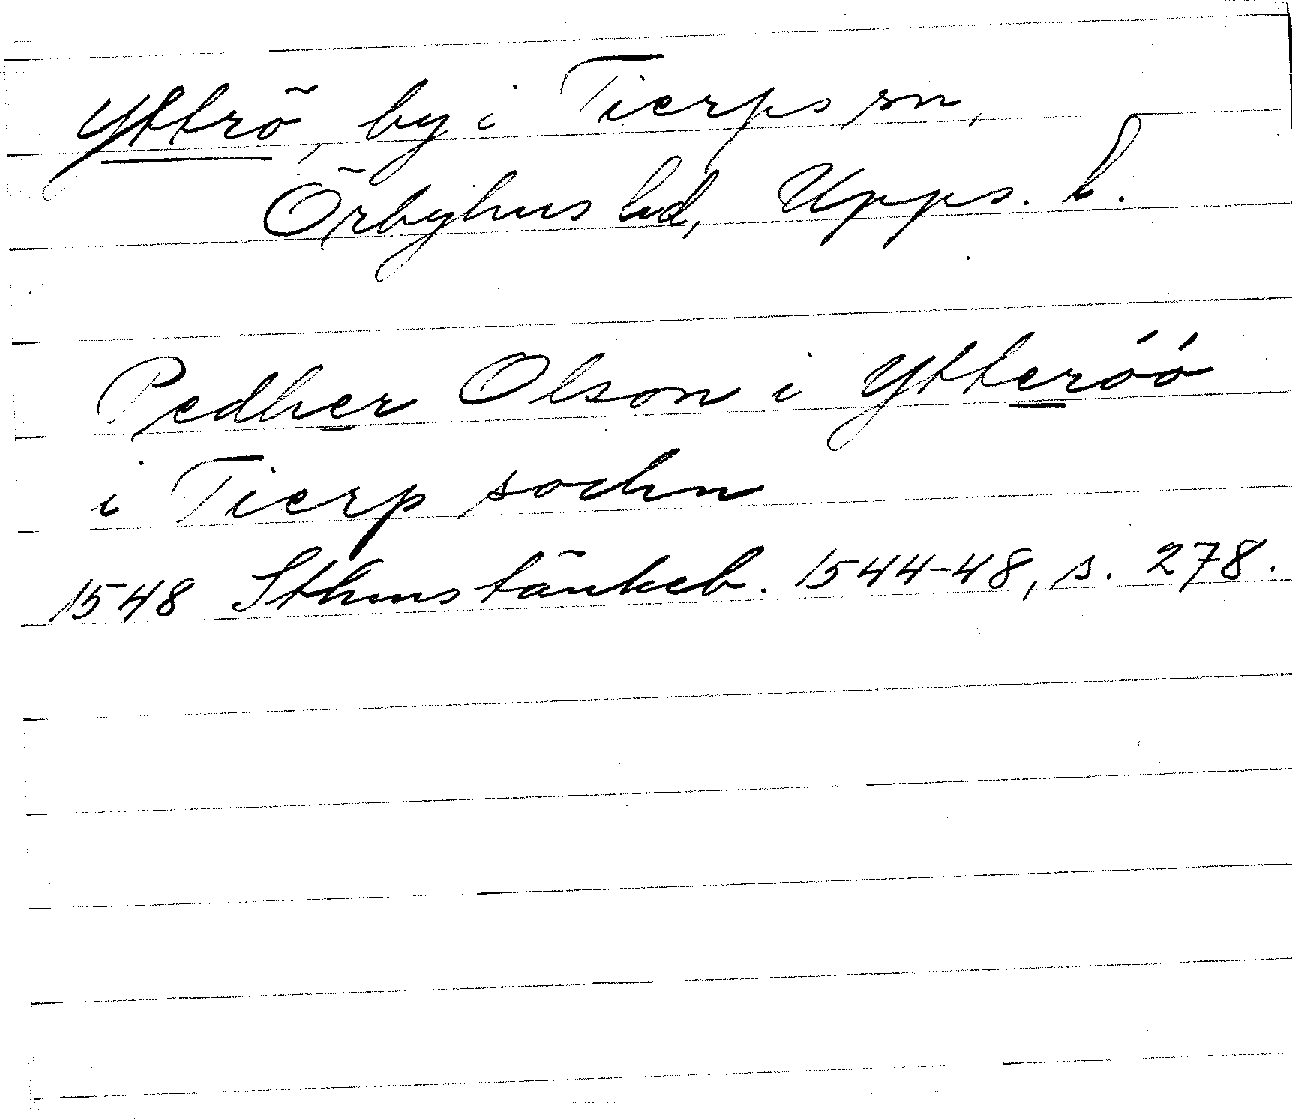 Yttrö, by i Tierps sn,
Örbyhus hd, Upps. l.
Pedher Olson i Ytteróó
i Tierp sochn
1548 Sthms tänkeb. 1544-48, s. 278.